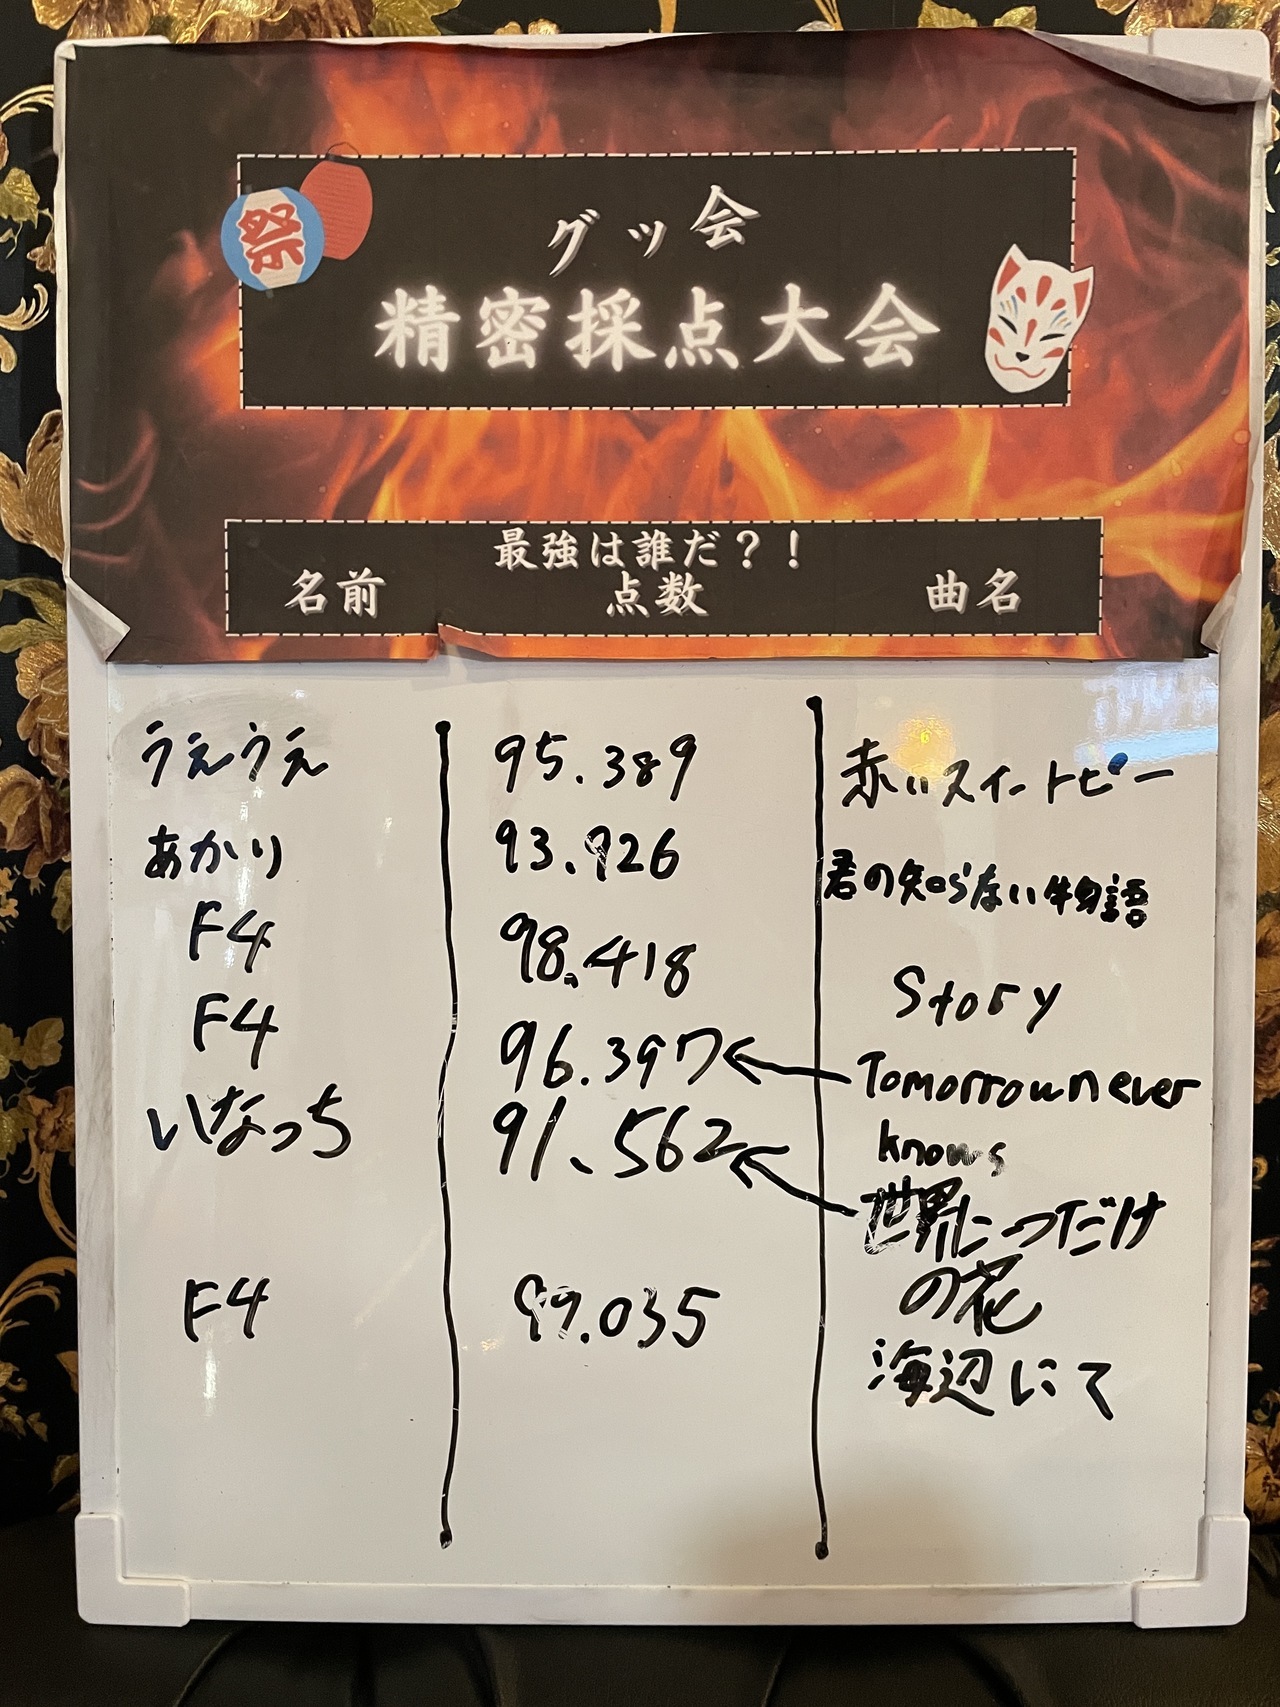 祭
グッ会
精密採点大会
最強は誰だ？！
名前 点数 曲名
うえうえ 95.389 赤いスイートピー
あかり 93.926 君の知らない物語
F4 98.418 Story
F4 96.397 Tomorrow never
knows
いなっち 91.562 世界に一つだけ
の花
F4 99.035 海辺にて